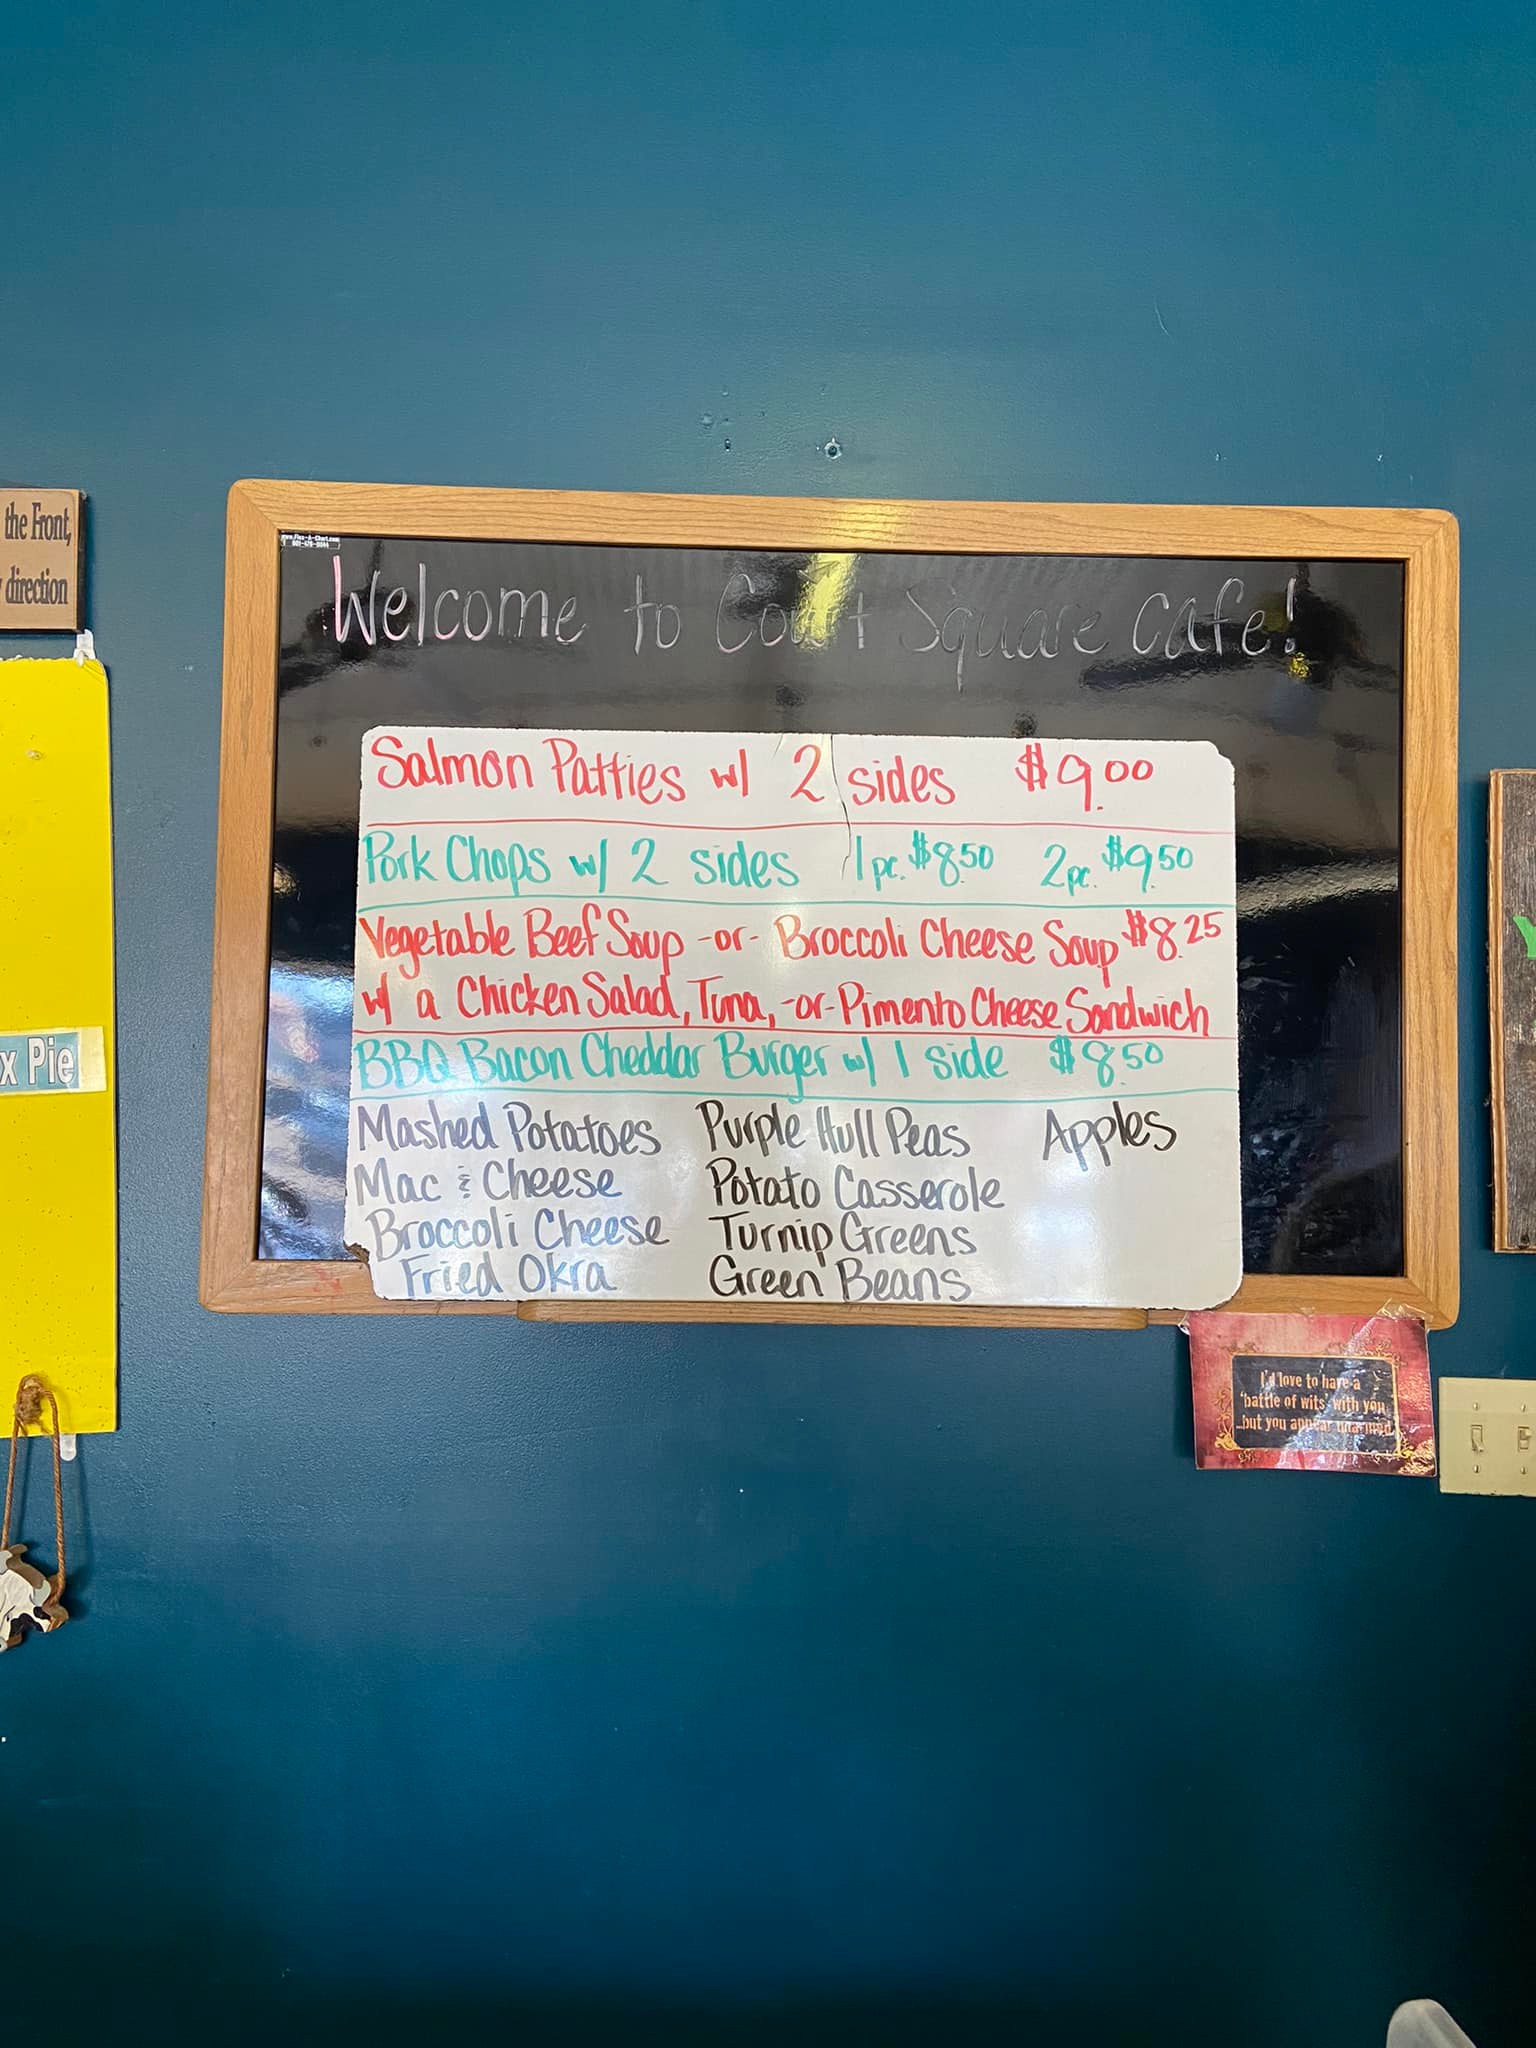 the Front,
direction
x Pie
Welcome to Court Square Cafe!
Salmon Patties w/ 2 sides $9.00
Pork Chops w/ 2 sides 1pc. $8.50 2pc. $9.50
Vegetable Beef Soup -or- Broccoli Cheese Soup $8.25
w/ a Chicken Salad, Tuna, -or- Pimento Cheese Sandwich
BBQ Bacon Cheddar Burger w/ 1 side $8.50
Mashed Potatoes Purple Hull Peas Apples
Mac & Cheese Potato Casserole
Broccoli Cheese Turnip Greens
Fried Okra Green Beans
I'd love to have a
'battle of wits' with you
...but you appear unarmed